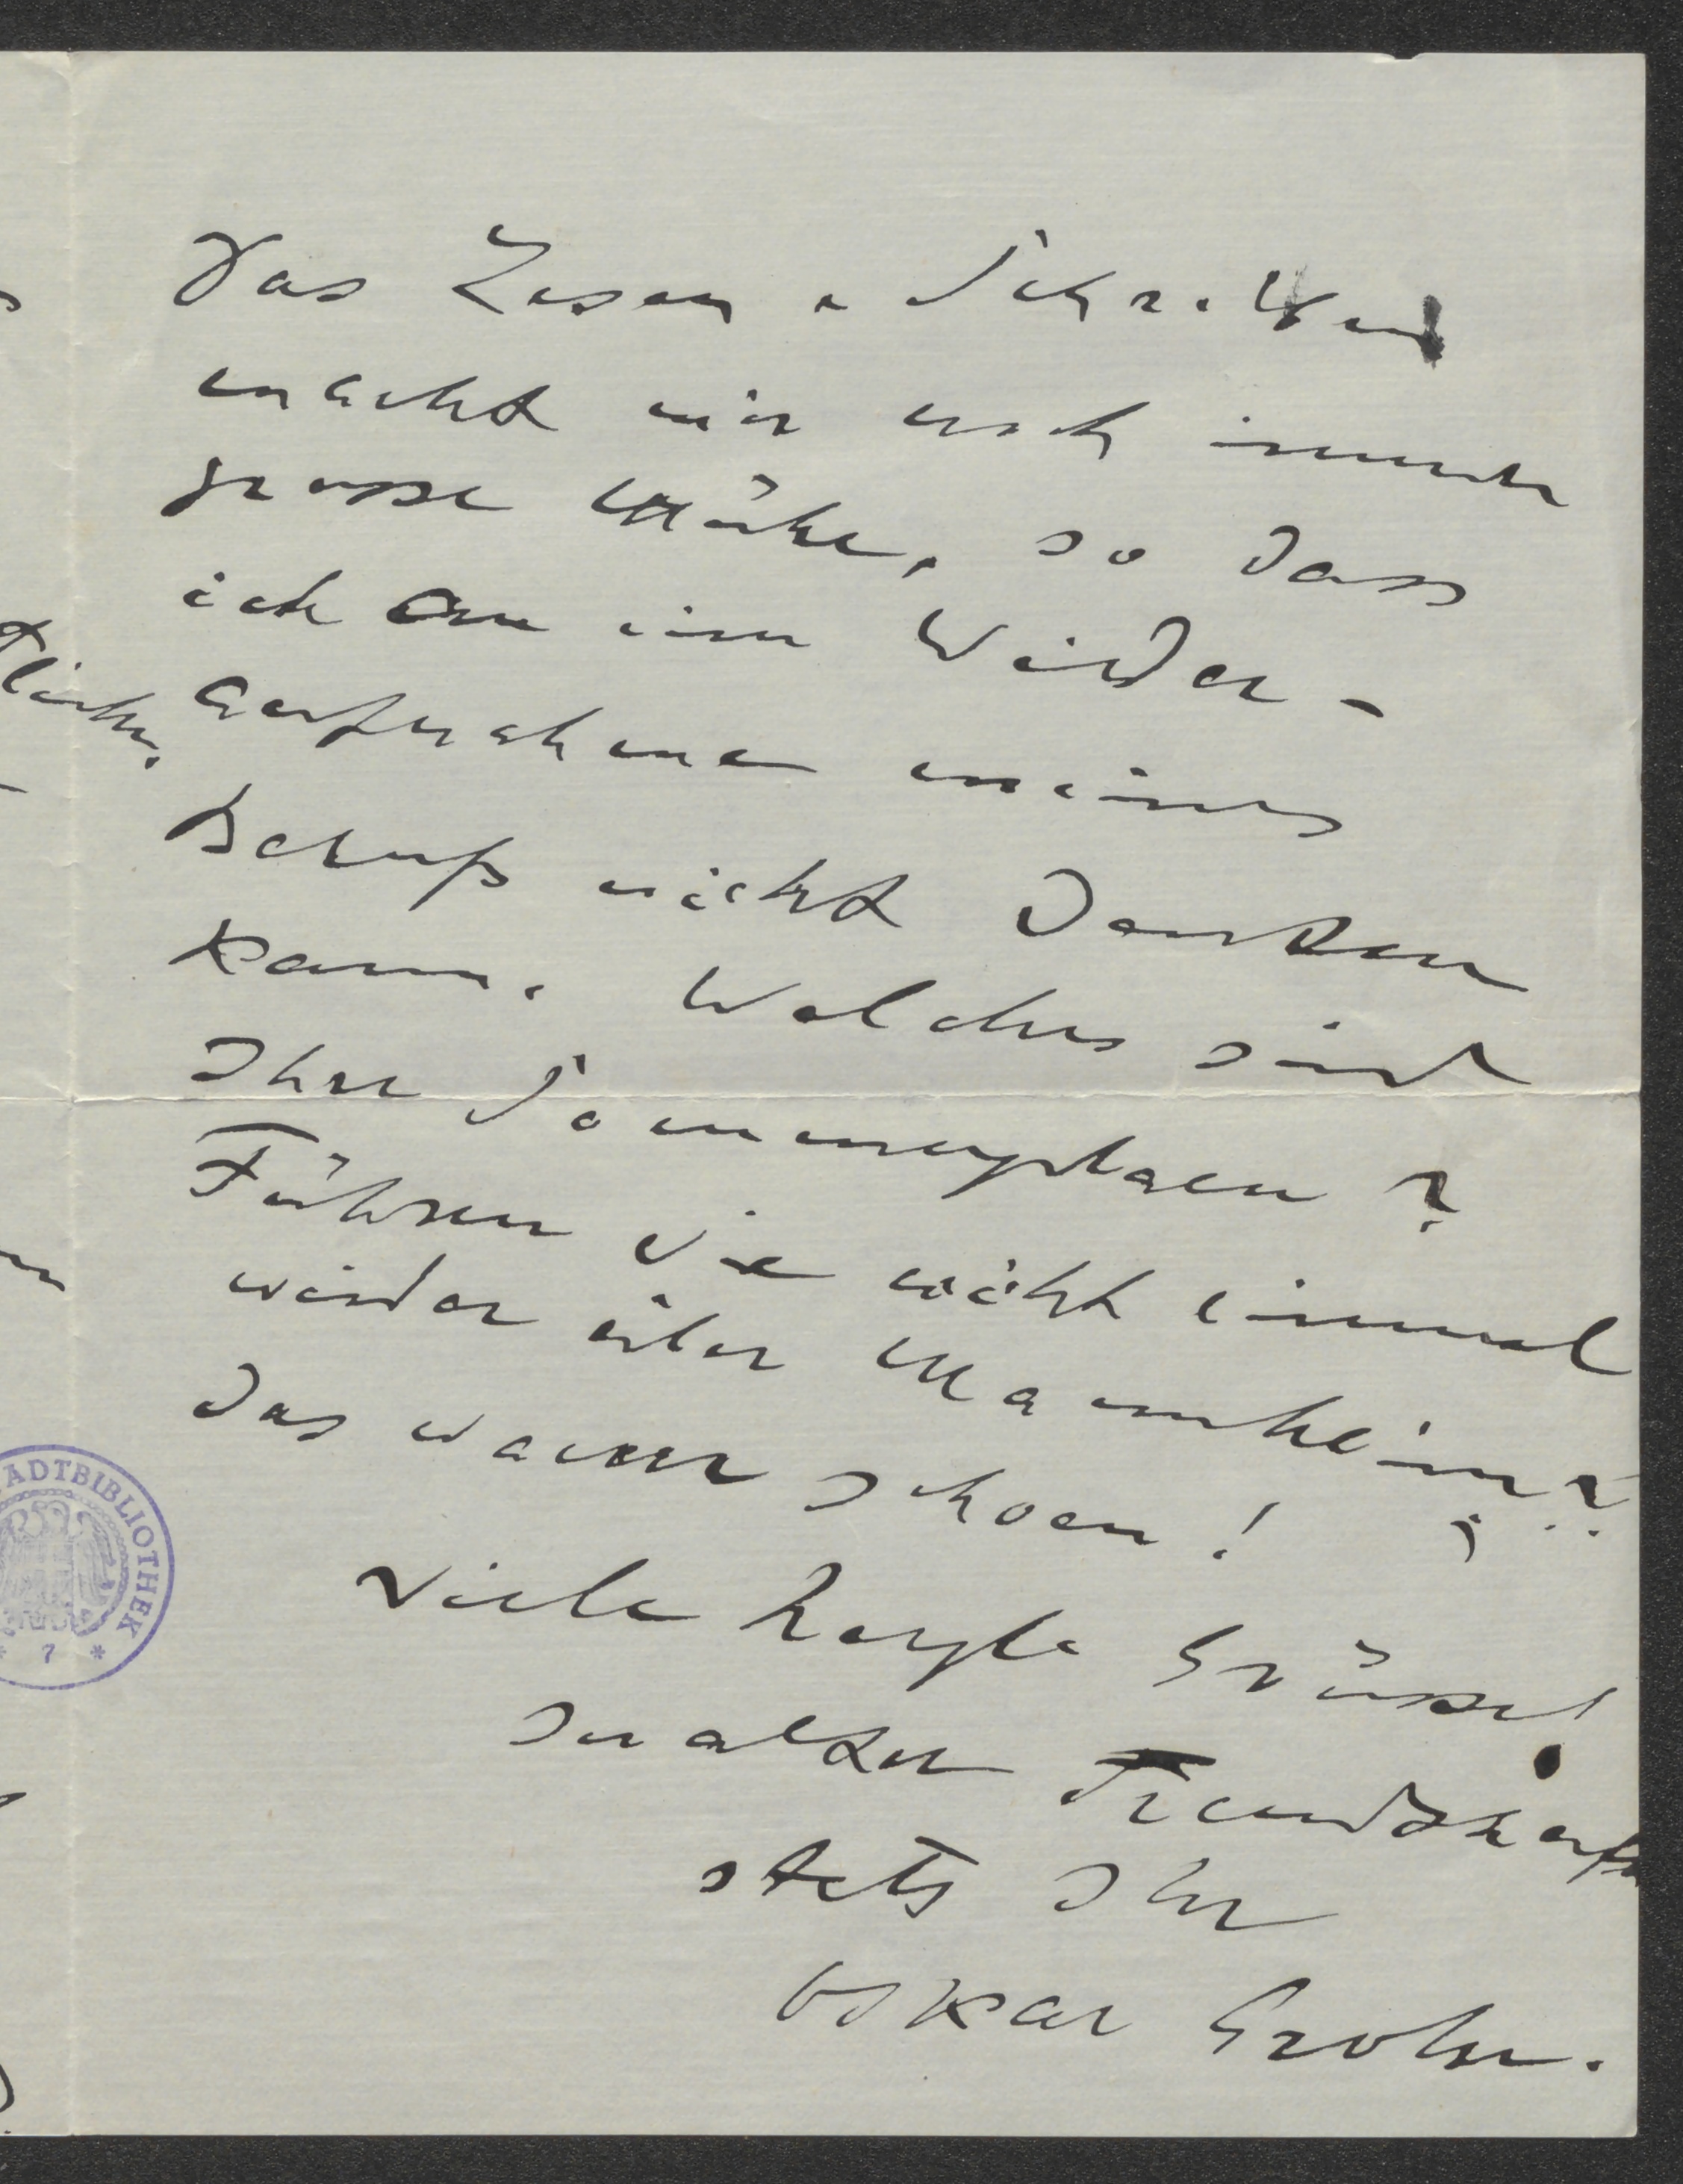 Das Lesen u Schreiben
macht mir noch immer
grosse Mühe, so dass
ich an eine Wieder-
aufnahme meines
Berufs nicht denken
kann. Welches sind
Ihre Sommerplaen?
Führen Sie nicht einmal
wieder über Mannheim??
Das waere schoen!
Viele herzle Grüsse!
In alter Freundschaft
stets Ihr
Oskar Grohe.
STADTBIBLIOTHEK
* 7 *